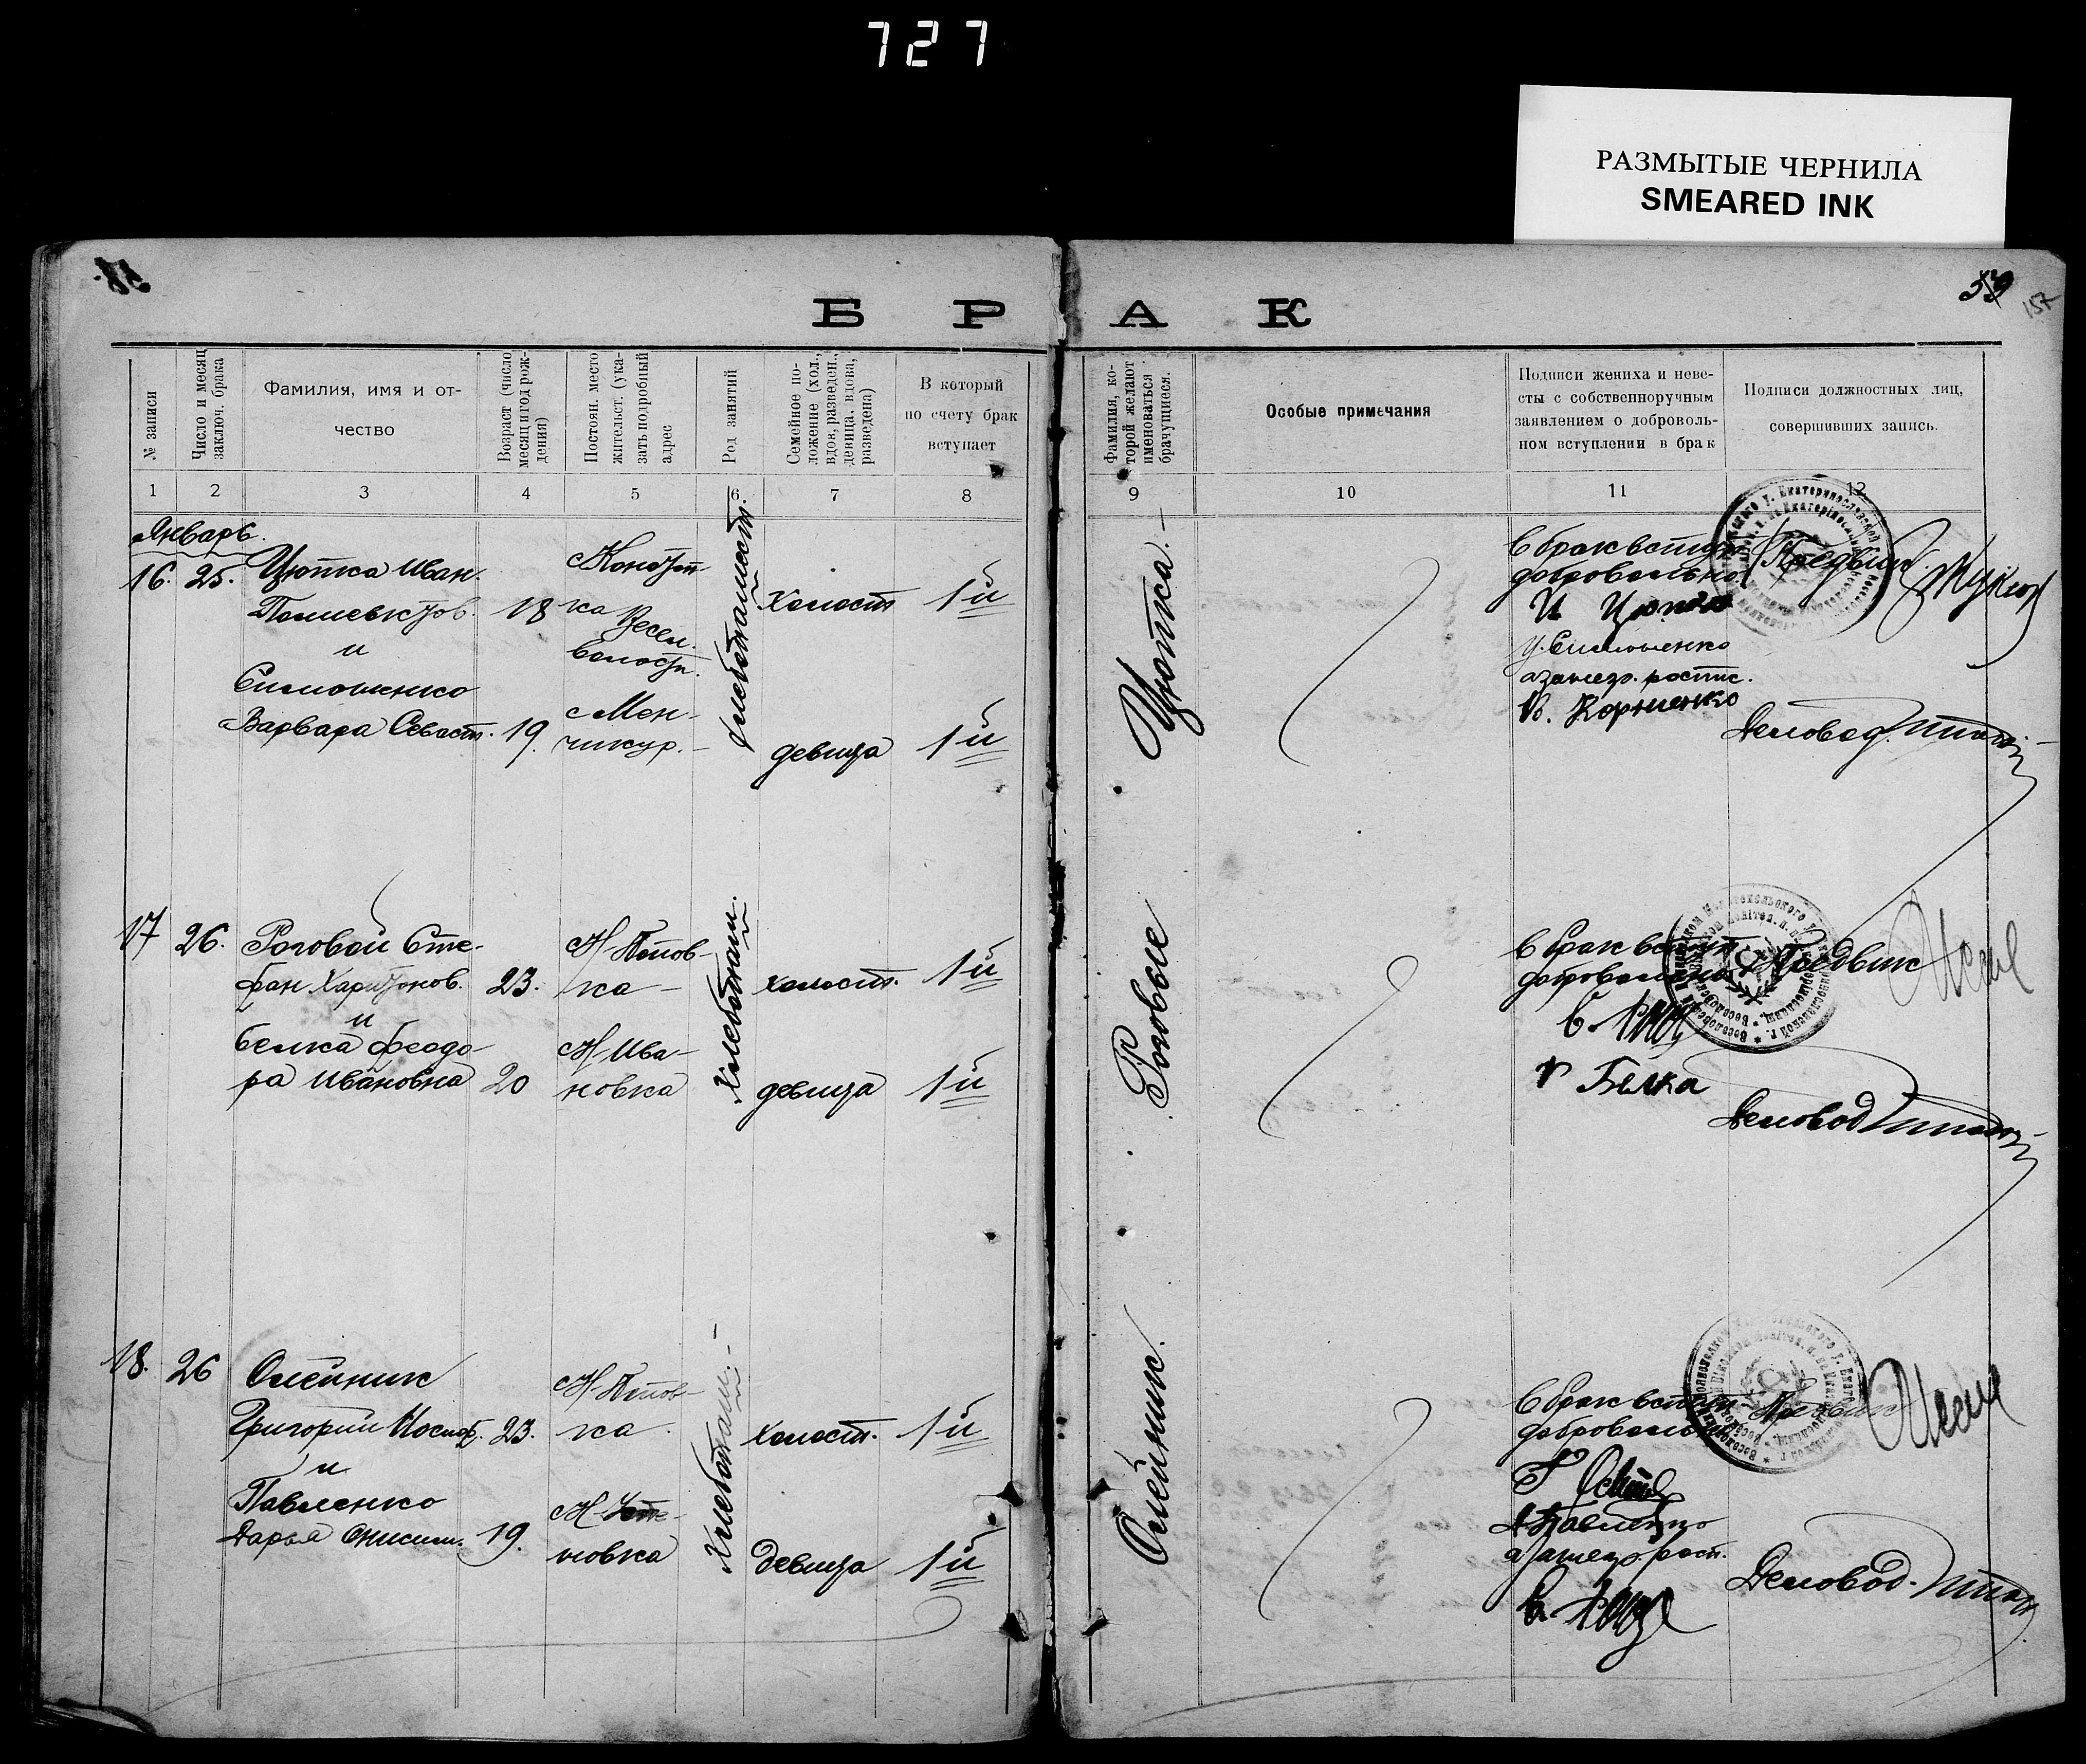 727
РАЗМЫТЫЕ ЧЕРНИЛА
SMEARED INK
157
БРАК
№ записи
Число и месяц
заключ. брака
Фамилия, имя и от-
чество
Возраст (число
месяц и год рож-
дения)
Постоян. место
жительст. (ука-
зать подробный
адрес
Род занятий
Семейное по-
ложение (хол.,
вдов, разведен.,
девица, вдова,
разведена)
В который
по счету брак
вступает
Фамилия, ко-
торой желают
именоваться
брачущиеся.
Особые примечания
Подписи жениха и неве-
сты с собственноручным
заявлением о доброволь-
ном вступлении в брак
Подписи должностных лиц,
совершивших запись.
1 2 3 4 5 6 7 8 9 10 11 12
Январь.
16. 25. Цютка Иван
Полиевктов. 18
и
Симоненко
Варвара Севаст. 19.
ка Весел.
волости.
с Мен-
чикур.
холост 1й
девица 1й
Цютка.
В брак вступ
добровольно
И Цютка
У. Симоненко
а за негр. роспис.
В. Корниенко
Предвик
Деловод.
17 26. Роговой Сте-
фан Харитонов. 23.
и
Белка Феодо-
ра Ивановна 20
Н-Попов-
ка
Н-Ива-
новка
Хлебопаш.
холост. 1й
девица 1й
Роговые
В брак вступ
добровольно
Белка
Предвик
Деловод
18. 26 Олейник
Григорий Иосиф. 23.
и
Павленко
Дарья Онисим. 19.
Н-Попов-
ка
новка
Хлебопаш.
холост. 1й
девица 1й
Олейник.
В брак вступ
добровольно
Павленко
Деловод.